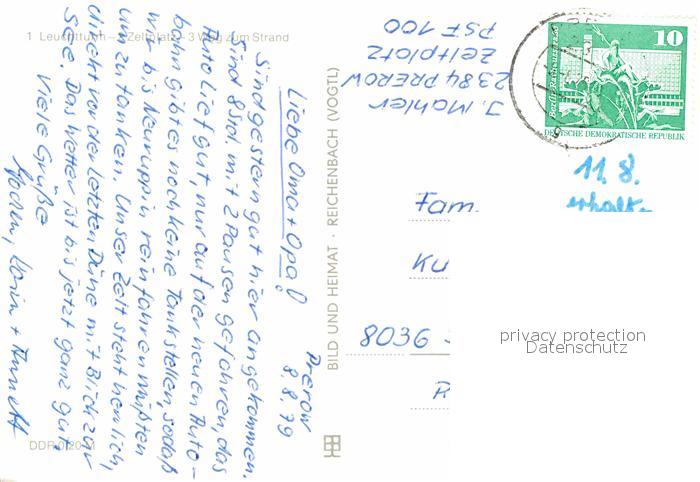 1 Leuchtturm – 2 Zeltplatz – 3 Weg zum Strand
Prerow
8.8.79
Liebe Oma + Opa!
Sind gestern gut hier angekommen.
Sind 8 Std. mit 2 Pausen gefahren, das
Auto lief gut, nur auf der neuen Auto-
bahn gibt es noch keine Tankstellen, sodaß
wir bis Neuruppin reinfahren mußten
um zu tanken. Unser Zelt steht herrlich,
direkt vor der letzten Düne mit Blick zur
See. Das Wetter ist bis jetzt ganz gut.
Viele Grüße
DDR 0,20 M
BILD UND HEIMAT · REICHENBACH (VOGTL)
J. Mahler
2384 PREROW
Zeltplatz
PSF 100
10
DEUTSCHE DEMOKRATISCHE REPUBLIK
11.8.
erhalt.
Fam.
Ku
8036
R
privacy protection
Datenschutz